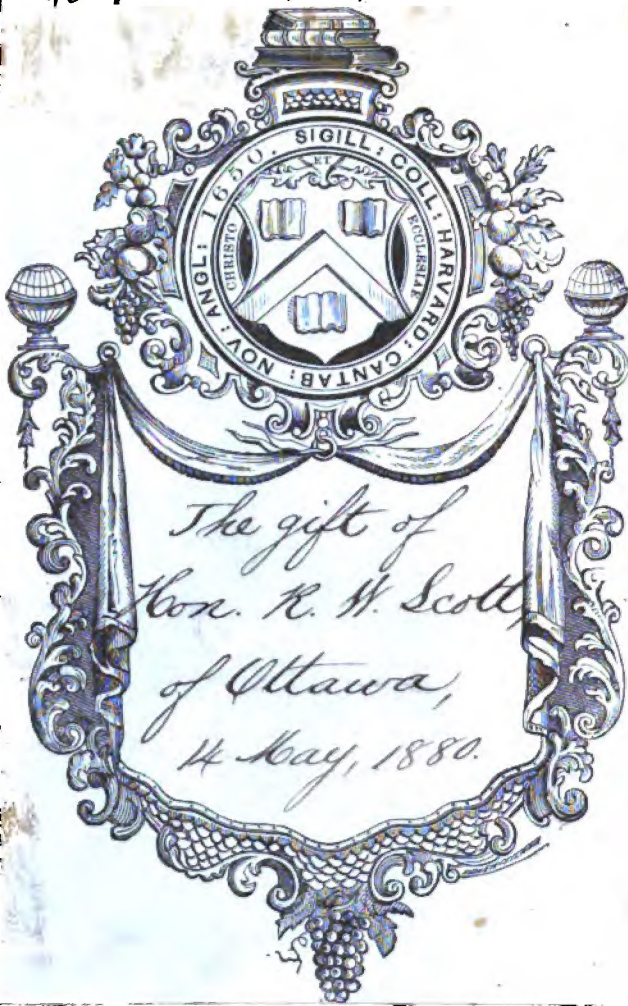 SIGILL: COLL: HARVARD: CANTAB: NOV: ANGL: 1650.
CHRISTO
ET
ECCLESIAE
The gift of
Hon. R. W. Scott,
of Ottawa,
14 May, 1880.